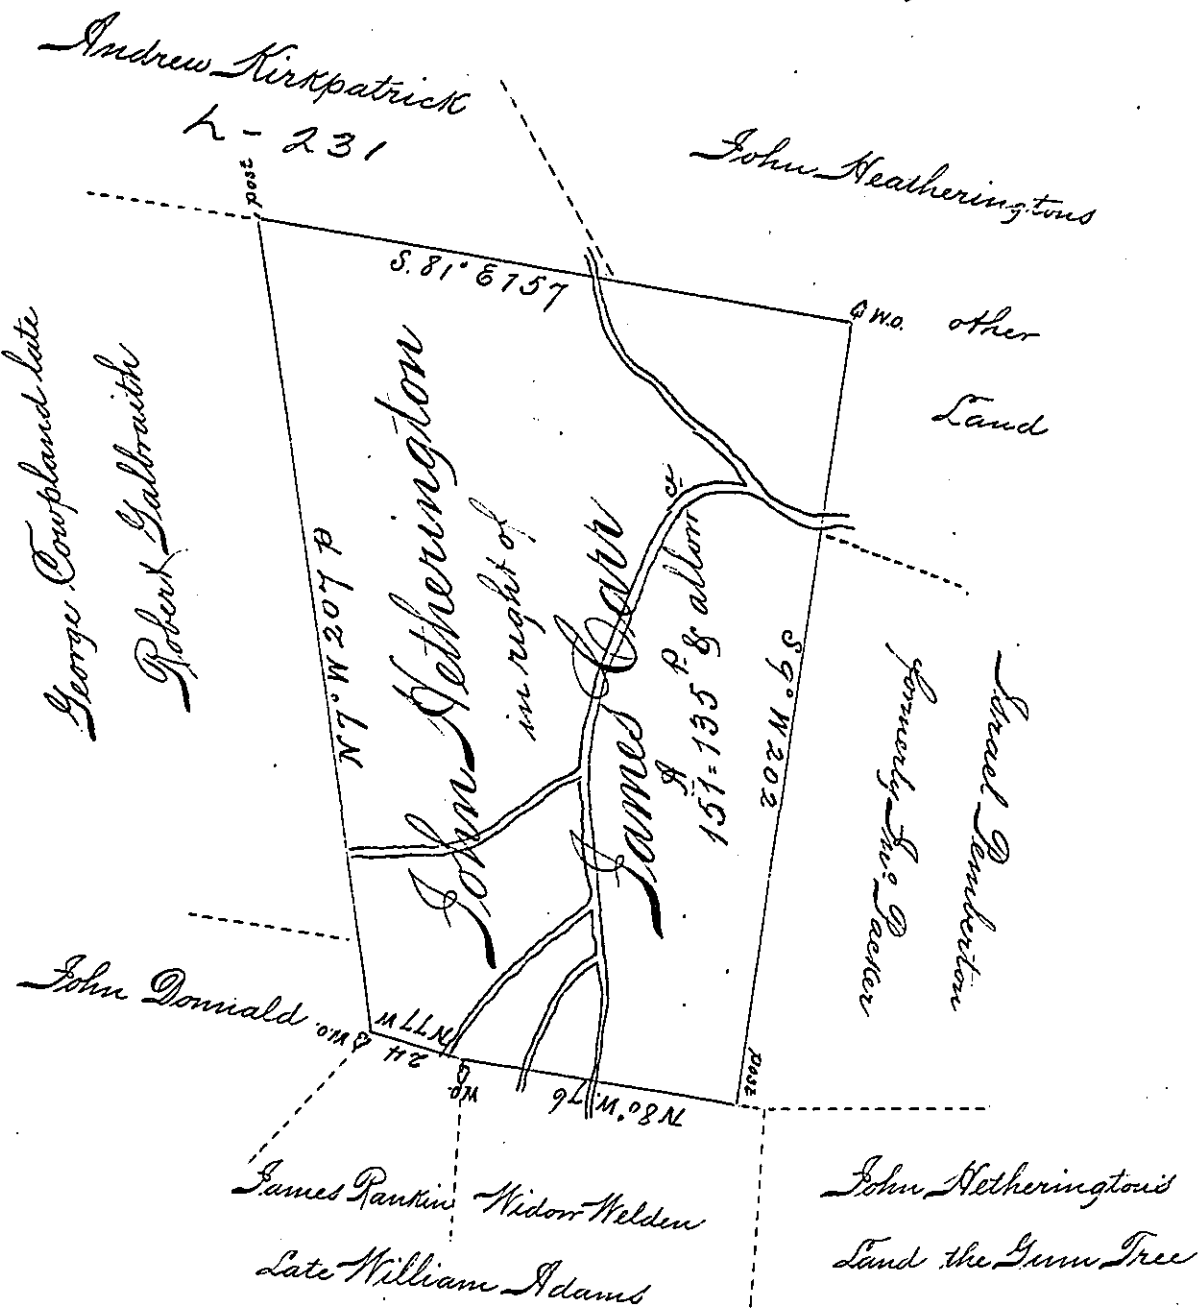 Andrew Kirkpatrick
L - 231
post
John Heatheringtons
other
Land
W.O.
S. 81° E 157
George Cowpland late
Robert Galbraith
N 7 W 207 P
John Hetherington
in right of
James Carr
A P
151 = 135 & allonce
S 9° W 202
formerly Jno. Packer
Israel Pemberton
John Donnald
W.O.
N 77 W
24
W.O.
N 80° W. 76
post
James Rankin
Widow Welden
Late William Adams
John Hetherington's
Land the Gum Tree